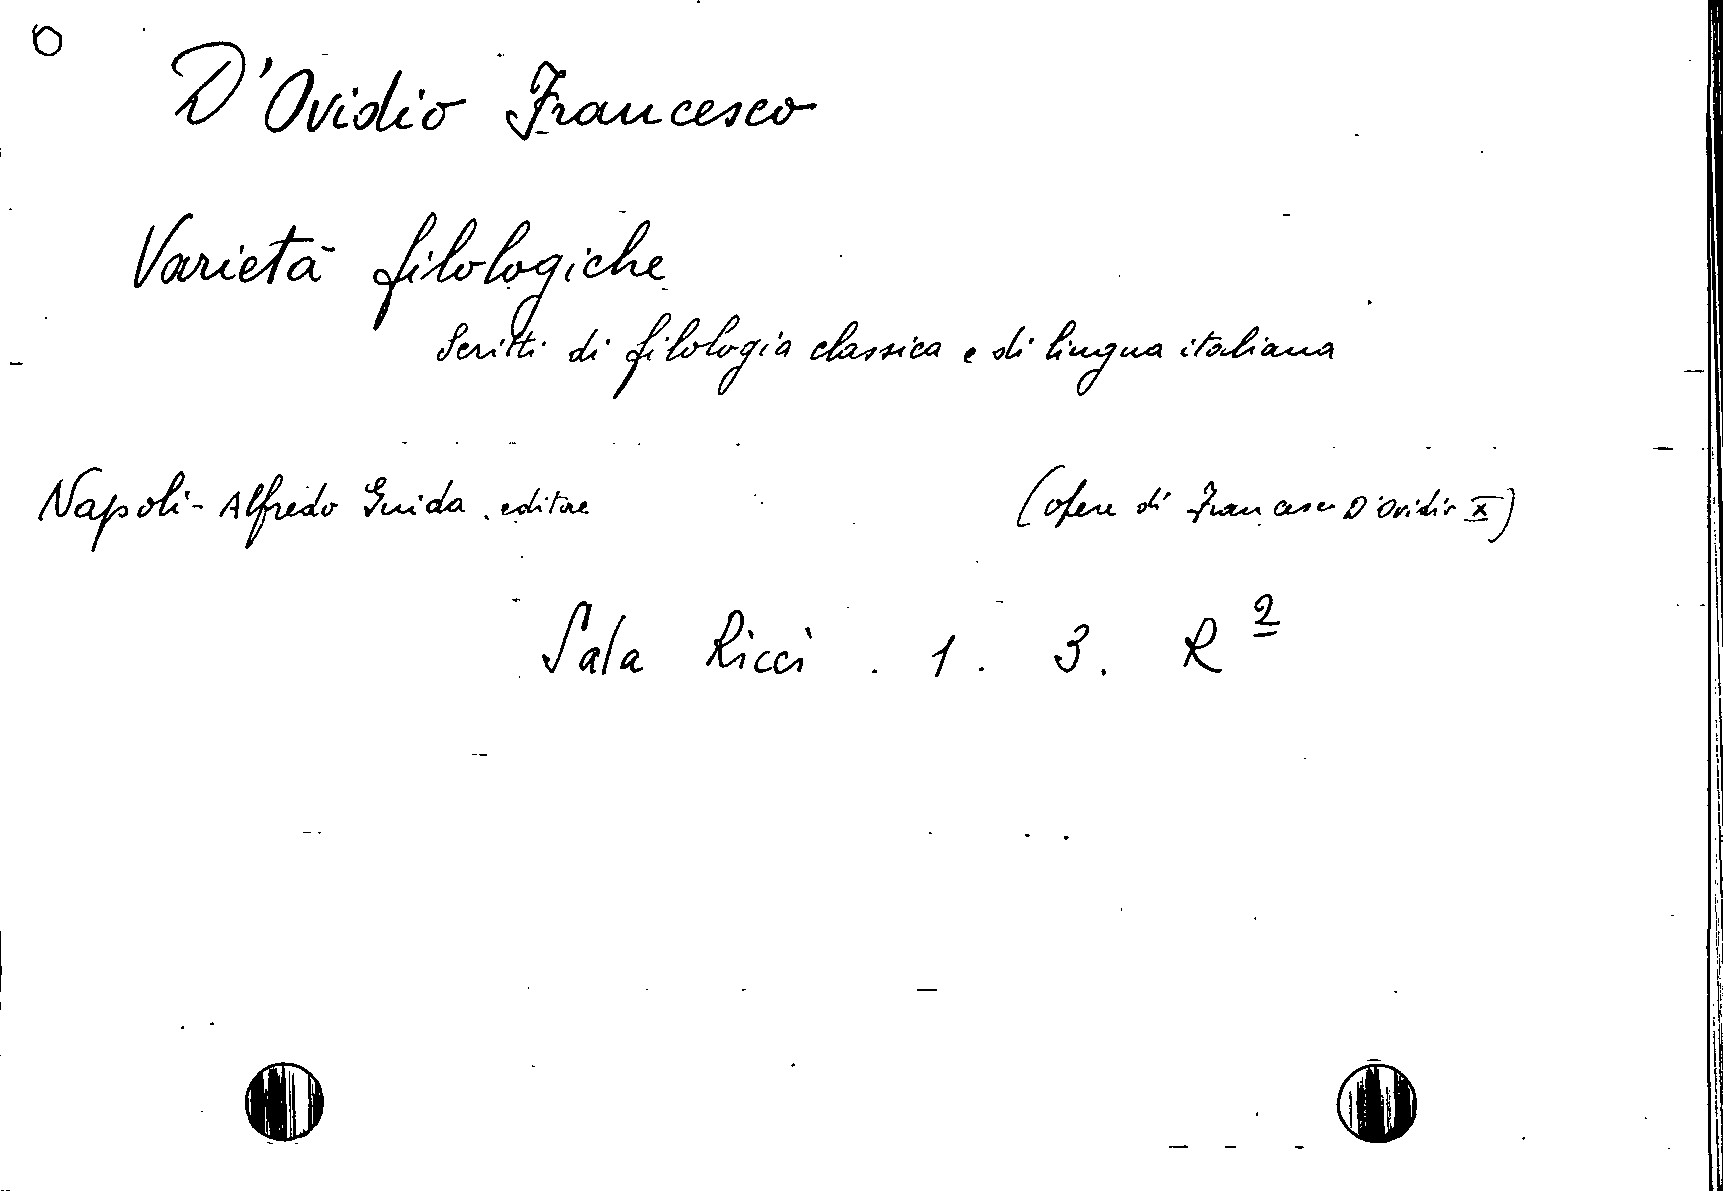 D'Ovidio Francesco
Varietà filologiche
Scritti di filologia classica e di lingua italiana
Napoli - Alfredo Guida, editore (opere di Francesco D'Ovidio X)
Sala Ricci . 1 . 3 . R 2